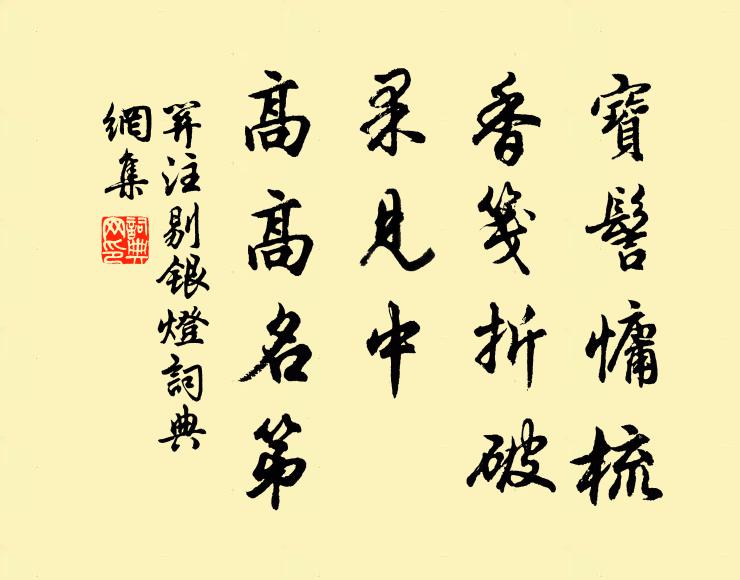 寶髻慵梳
香箋折破
果見中
高高名第
羿注剔銀燈詞典
網集
詞典网印